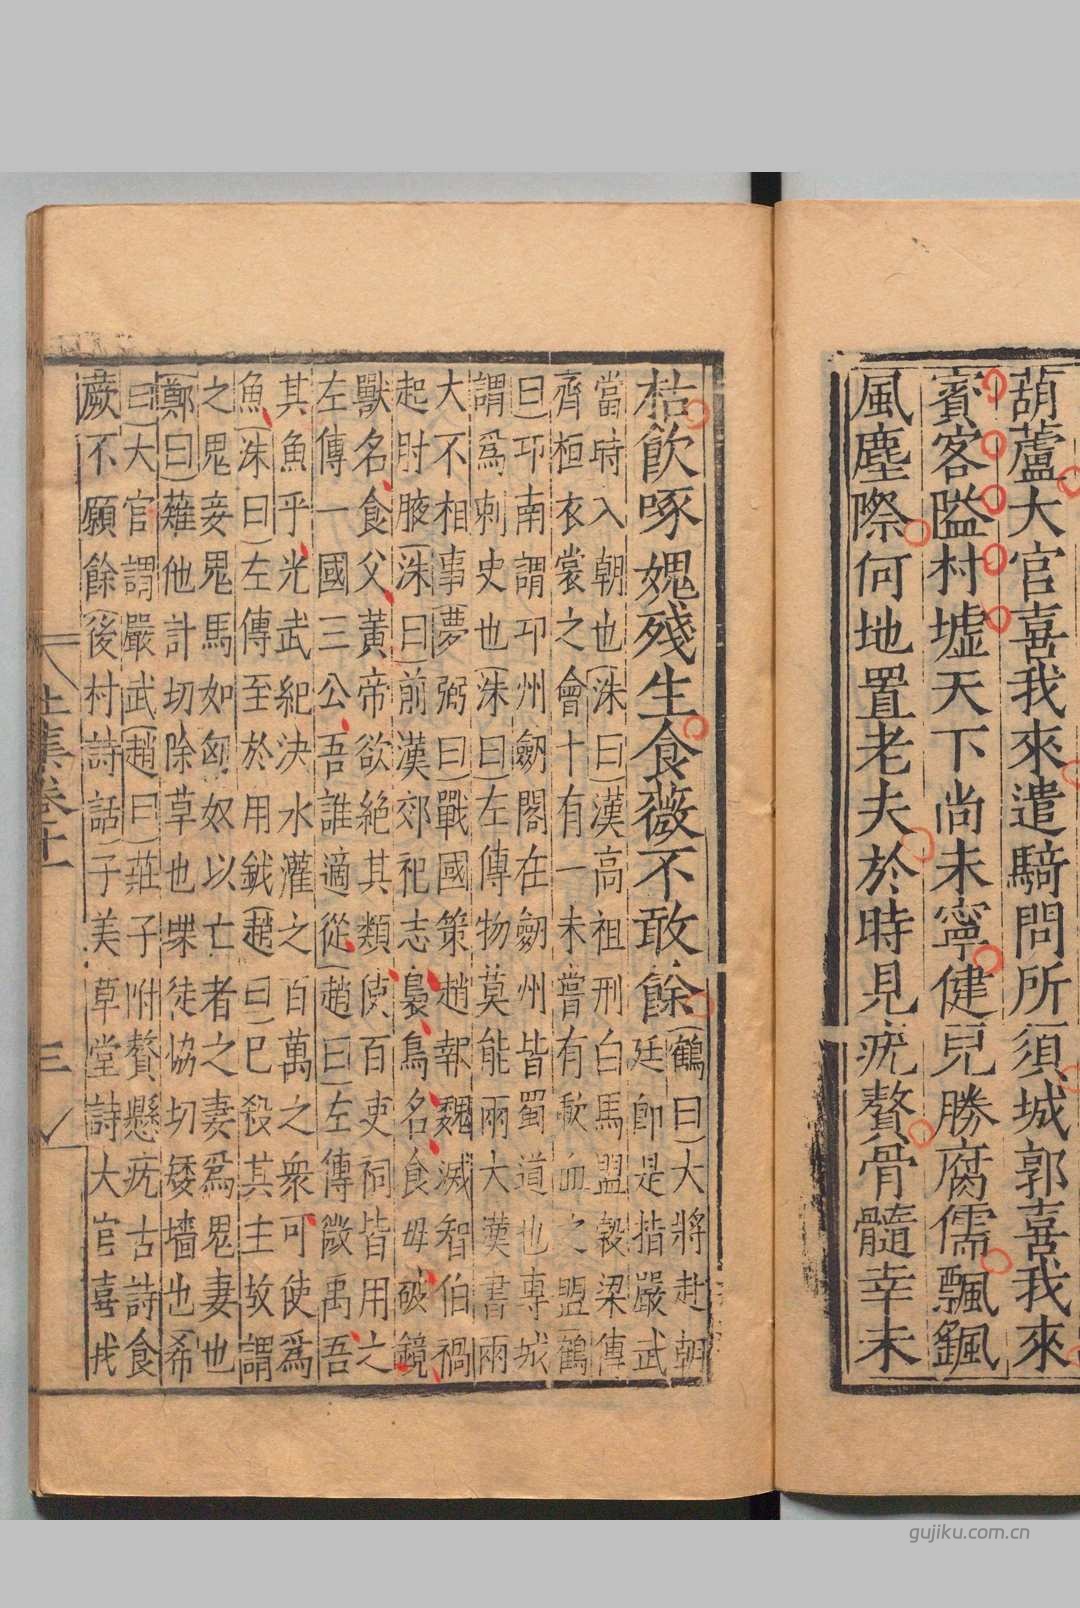 葫蘆大官喜我來遣騎問所須城郭喜我來
賓客隘村墟天下尚未寧健兒勝腐儒飄飖
風塵際何地置老夫於時見疣贅骨髓幸未
枯飲啄媿殘生食薇不敢餘
鶴曰大將赴朝
廷即是指嚴武
當時入朝也洙曰漢高祖刑白馬盟榖梁傳
齊桓衣裳之會十有一未嘗有歃血之盟鶴
曰卭南謂卭州劒閣在劒州皆蜀道也專城
謂爲刺史也洙曰左傳物莫能兩大漢書兩
大不相事夢弼曰戰國策趙報魏滅智伯禍
起肘腋洙曰前漢郊祀志梟鳥名食母破鏡
獸名食父黃帝欲絶其類使百吏祠皆用之
左傳一國三公吾誰適從趙曰左傳微禹吾
其魚乎光武紀決水灌之百萬之衆可使爲
魚洙曰左傳至於用鉞趙曰已殺其主故謂
之鬼妾鬼馬如匈奴以亡者之妻爲鬼妻也
鄭曰薙他計切除草也㗫徒協切矮墻也希
曰大官謂嚴武趙曰莊子附贅懸疣古詩食
蕨不願餘後村詩話子美草堂詩大官喜我
集卷十一
三
gujiku.com.cn